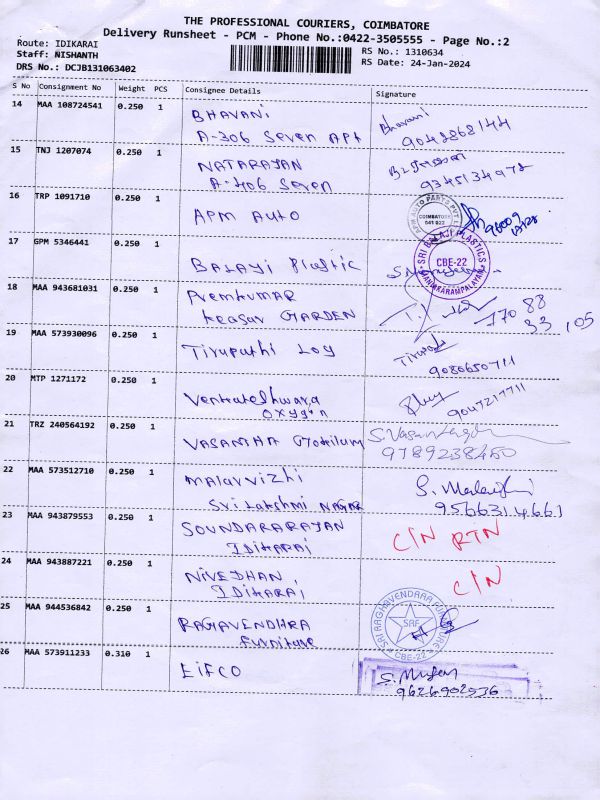 THE PROFESSIONAL COURIERS, COIMBATORE
Delivery Runsheet - PCM - Phone No.:0422-3505555 - Page No.:2
Route: IDIKARAI
Staff: NISHANTH
RS No.: 1310634
DRS No.: DCJB131063402
RS Date: 24-Jan-2024
S No Consignment No Weight PCS Consignee Details Signature
14 MAA 108724541 0.250 1 BHAVANI Bhavani
A-306 Seven APt 9042868144
15 TNJ 1207074 0.250 1 NATARAJAN
A-406 Seven 9345134972
16 TRP 1091710 0.250 1 APM AUTO
APM AUTO PARTS PVT LTD
COIMBATORE
641 022
17 GPM 5346441 0.250 1 BALAJI Plastic
SRI BALAJI PLASTICS
CBE-22
MANIKARAMPALAYAM
18 MAA 943681031 0.250 1 Premkumar
Keasar GARDEN 770 88
33 105
19 MAA 573930096 0.250 1 Tirupathi Log Tirupathi
9080650711
20 MTP 1271172 0.250 1 Venkateshwara
oxygin 9047217711
21 TRZ 240564192 0.250 1 VASANTHA S.Vasantha
9789238450
22 MAA 573512710 0.250 1 malarvizhi
Sri Lakshmi NAGAR 9566314661
23 MAA 943879553 0.250 1 SOUNDARARAJAN C/N RTN
IDIKARAI
24 MAA 943887221 0.250 1 NIVEDHAN, C/N
IDIKARAI
25 MAA 944536842 0.250 1 RAGAVENDHRA
Furniture
SRI RAGHAVENDRA FURNITURE
SRF
CBE-22
26 MAA 573911233 0.310 1 EIFCO
9626902536